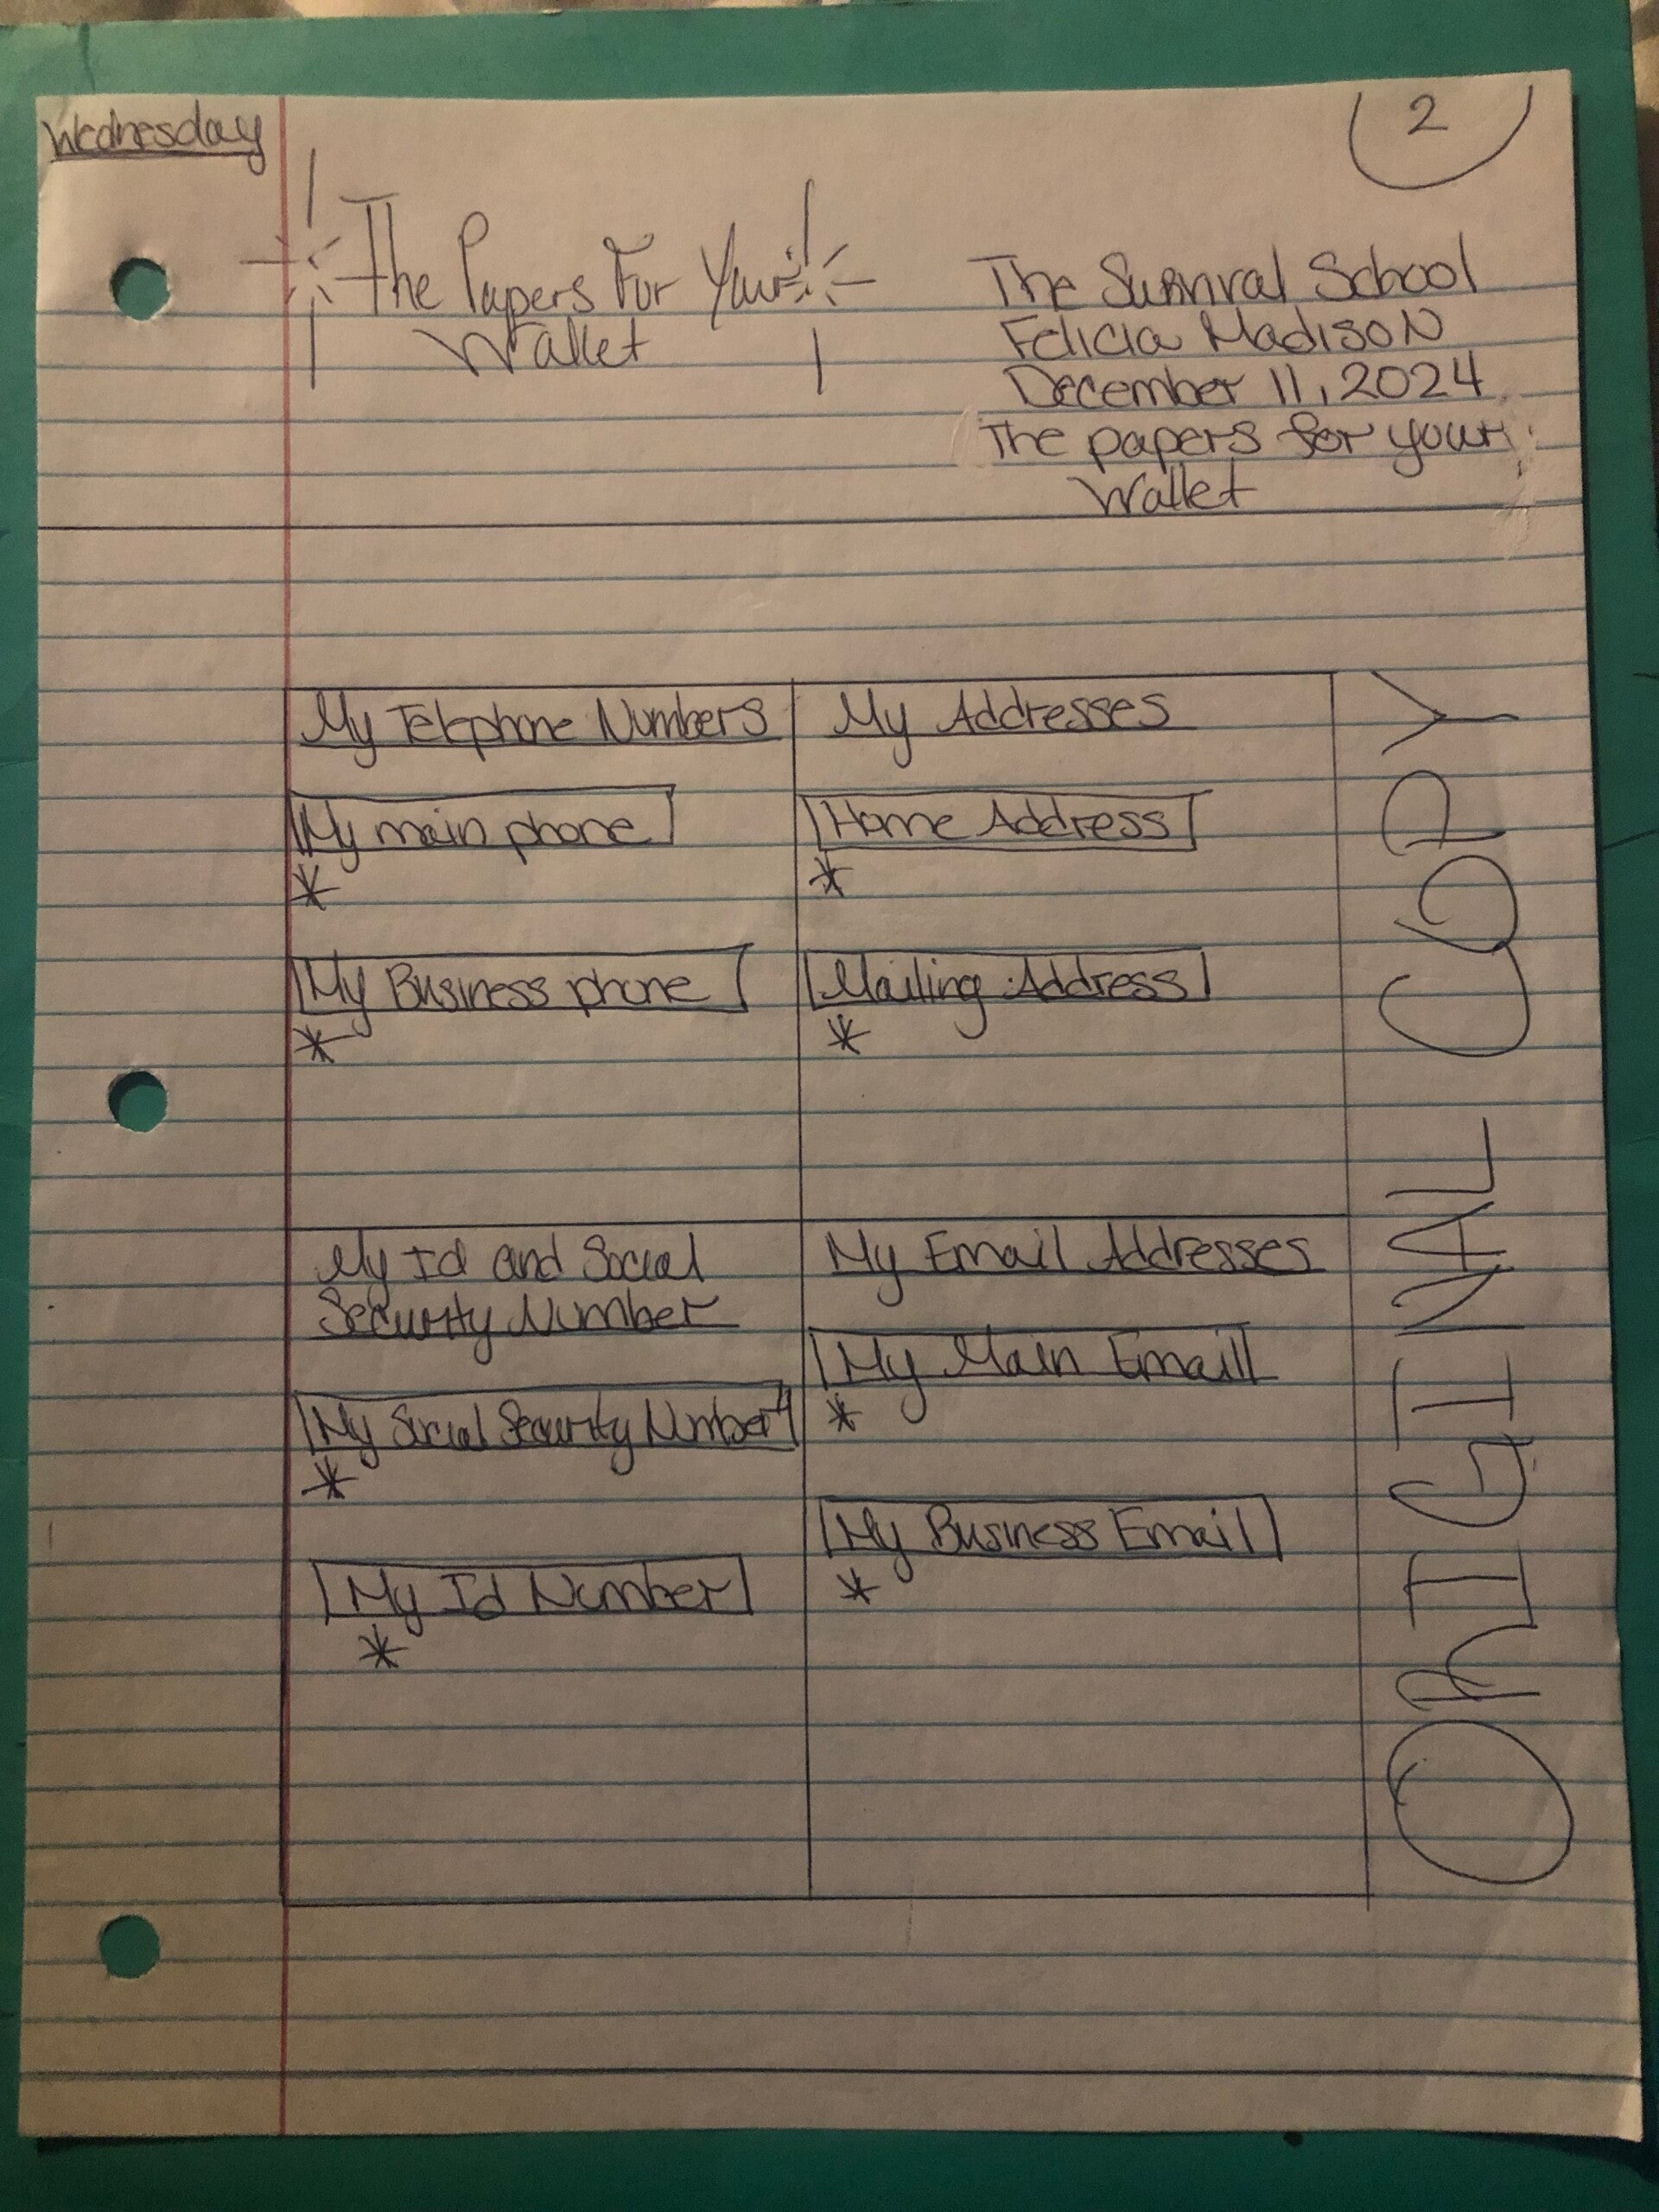 Wednesday
2
The Papers For Your
Wallet
The Survival School
Felicia Madison
December 11, 2024
The papers for your
Wallet
My Telephone Numbers
My main phone
*
My Business phone
*
My Addresses
Home Address
*
Mailing Address
*
My Id and Social
Security Number
My Social Security Number
*
My Id Number
*
My Email Addresses
My Main Email
*
My Business Email
*
ORIGINAL COPY